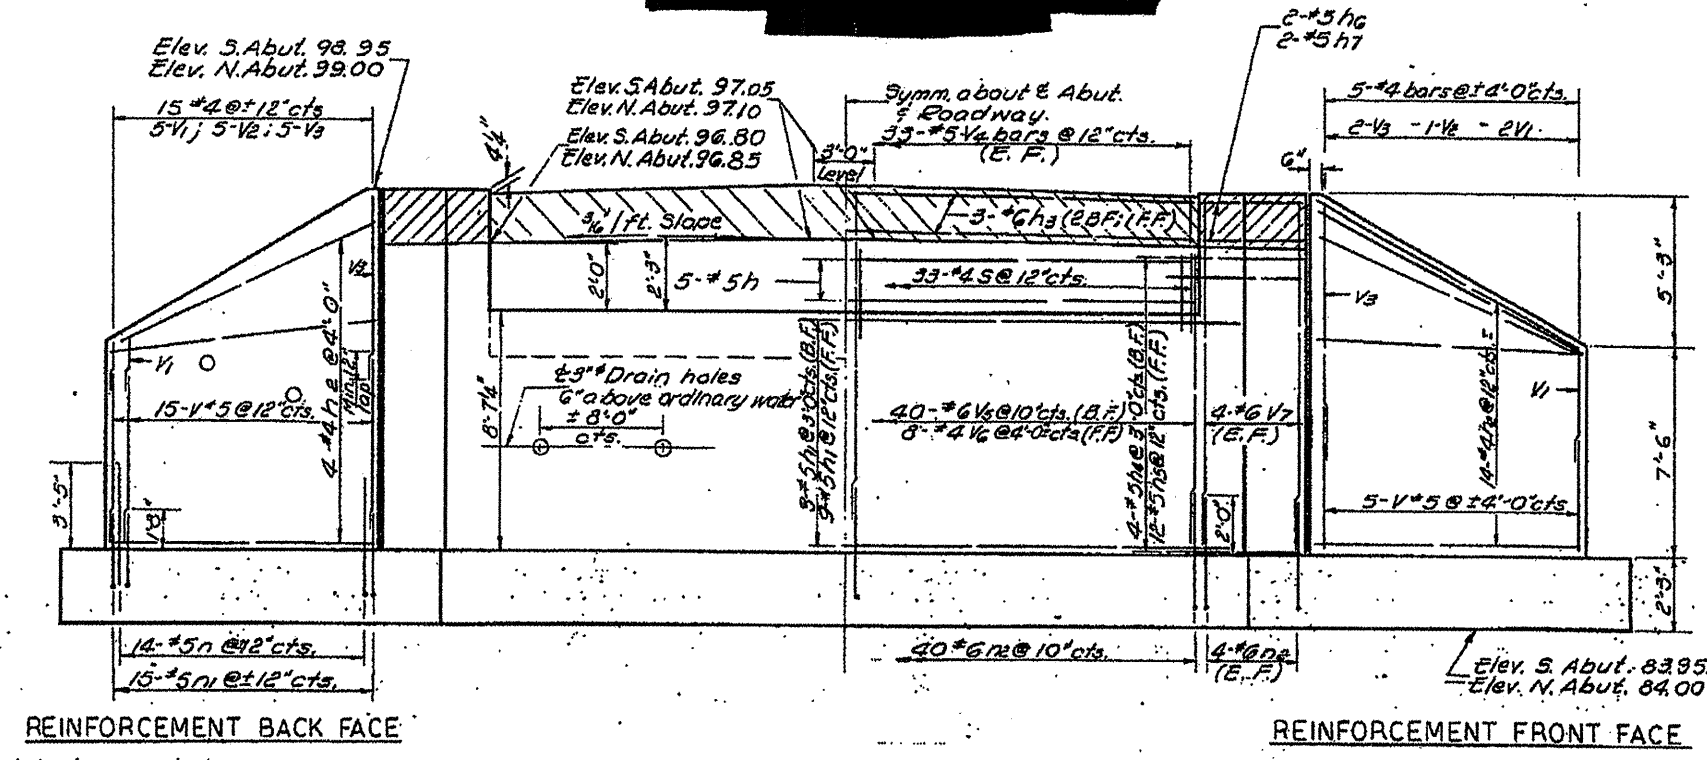 2-#5 h6
2-#5 h7
Elev. S. Abut. 98.95
Elev. N. Abut. 99.00
15 #4 @ ± 12" cts
5-V1; 5-V2; 5-V3
4½"
Elev. S. Abut. 97.05
Elev. N. Abut. 97.10
Elev. S. Abut. 96.80
Elev. N. Abut. 96.85
3'-0"
Level
Symm. about ℄ Abut.
℄ Roadway.
33-#5 V4 bars @ 12" cts.
(E. F.)
5-#4 bars @ ± 4'-0" cts.
2-V3 - 1-V2 - 2V1.
6"
3/16"/ft. Slope
3-#6 h3 (2 B.F.; 1 F.F.)
V3
2'-0"
2'-3"
5-#5 h
33-#4 S @ 12" cts.
V3
5'-3"
4-#4 h2 @ 4'-0"
Min. 12"
lap
V1
8'-7¼"
℄ 3"ø Drain holes
6" above ordinary water
± 8'-0"
cts.
15-V #5 @ 12" cts.
3-#5 h1 @ 3'-0" cts. (B.F.)
9-#5 h1 @ 12" cts. (F.F.)
40-#6 V5 @ 10" cts. (B.F.)
8-#4 V6 @ 4'-0" cts. (F.F.)
4-#5 h4 @ 3'-0" cts. (B.F.)
12-#5 h5 @ 12" cts. (F.F.)
4-#6 V7
(E. F.)
14-#4 h2 @ 12" cts. ±
V1
7'-6"
3'-5"
1'-8"
2'-0"
5-V #5 @ ± 4'-0" cts.
2'-3"
14-#5 n @ 12" cts.
15-#5 n1 @ ± 12" cts.
40 #6 n2 @ 10" cts.
4-#6 n2
(E. F.)
Elev. S. Abut. 83.95
Elev. N. Abut. 84.00
REINFORCEMENT BACK FACE
REINFORCEMENT FRONT FACE